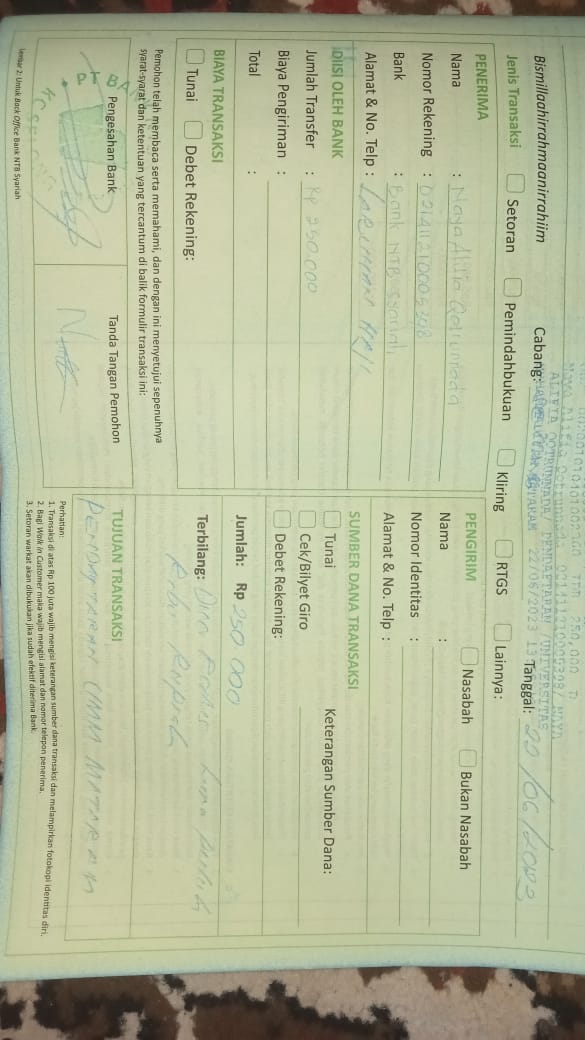 Bismillaahirrahmaanirrahiim
Cabang:
Tanggal: 22/06/2023
Jenis Transaksi Setoran Pemindahbukuan Kliring RTGS Lainnya:
PENERIMA
Nama : Naya Alifia
Nomor Rekening :
Bank : Bank NTB Syariah
Alamat & No. Telp :
PENGIRIM Nasabah Bukan Nasabah
Nama :
Nomor Identitas :
Alamat & No. Telp :
DIISI OLEH BANK
Jumlah Transfer : Rp 250.000
Biaya Pengiriman :
Total :
SUMBER DANA TRANSAKSI
Tunai Keterangan Sumber Dana:
Cek/Bilyet Giro
Debet Rekening:
BIAYA TRANSAKSI
Tunai Debet Rekening:
Jumlah: Rp 250.000
Terbilang: Dua Lima Puluh
Ribu Rupiah
Pemohon telah membaca serta memahami, dan dengan ini menyetujui sepenuhnya
syarat-syarat dan ketentuan yang tercantum di balik formulir transaksi ini:
Pengesahan Bank
Tanda Tangan Pemohon
TUJUAN TRANSAKSI
PENDAFTARAN MATARAM
Perhatian:
1. Transaksi di atas Rp 100 juta wajib mengisi keterangan sumber dana transaksi dan melampirkan fotokopi identitas diri.
2. Bagi Walk in Customer maka wajib mengisi alamat dan nomor telepon penerima.
3. Setoran warkat akan dibukukan jika sudah efektif diterima Bank.
Lembar 2: Untuk Back Office Bank NTB Syariah